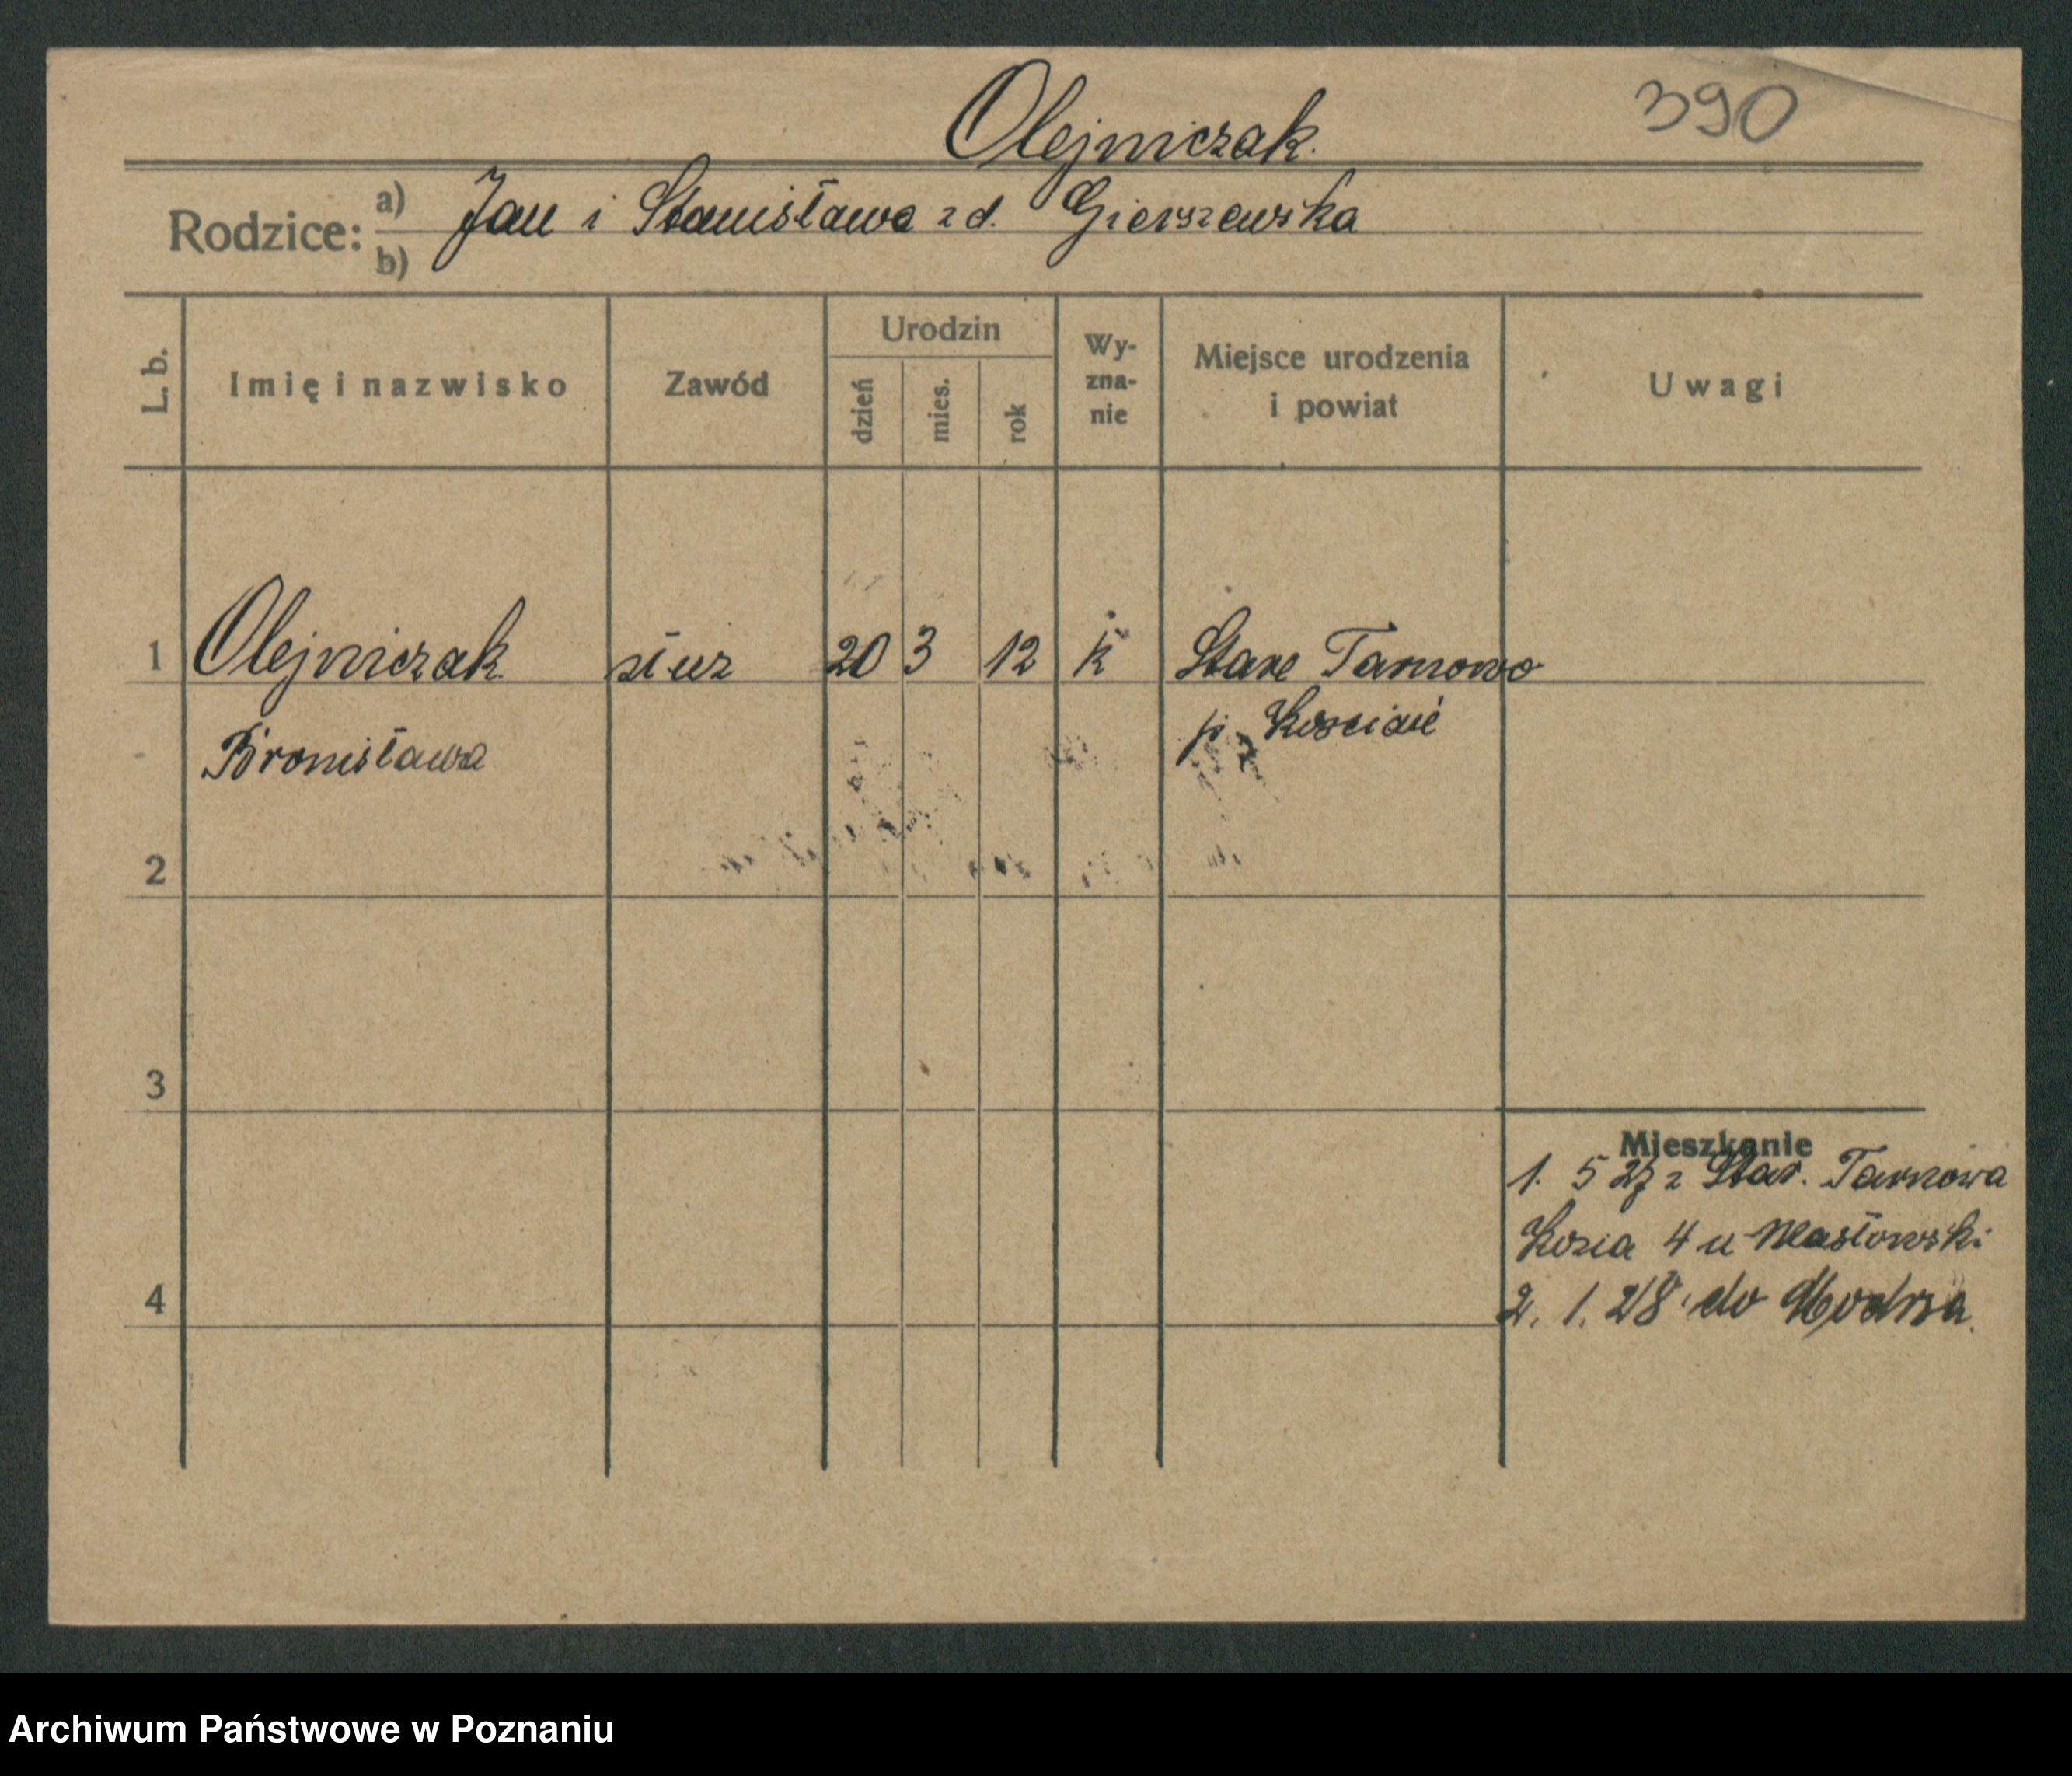 Olejniczak.
390
Rodzice: a) b) Jan i Stanisława zd. Gierszewska
L. b.
Imię i nazwisko
Zawód
Urodzin
dzień
mies.
rok
Wy-
zna-
nie
Miejsce urodzenia
i powiat
Uwagi
1 Olejniczak służ 20 3 12 k Stare Tarnowo
Bronisława p. Kościań
2
3
Mieszkanie
1. 5 27 z Star. Tarnowa
Kozia 4 u Masłowski
4 2. 1. 28 do Modrza.
Archiwum Państwowe w Poznaniu